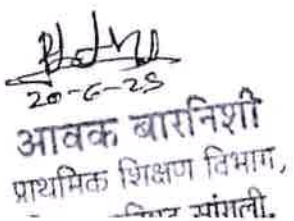 20-6-25
आवक बारनिशी
प्राथमिक शिक्षण विभाग,
सांगली.